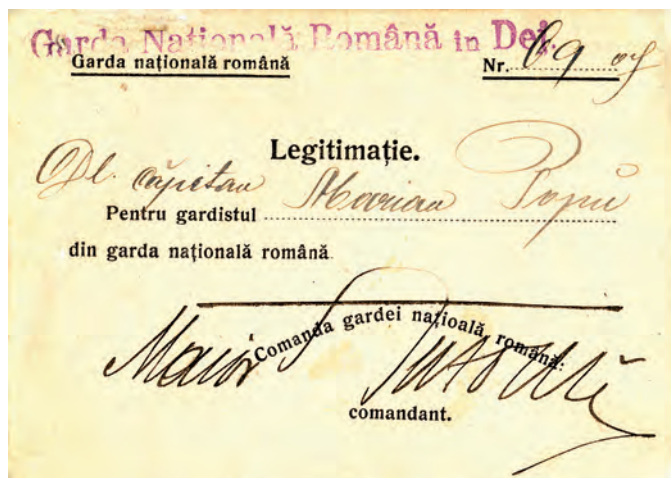 Garda Națională Română în Dej.
Garda națională română
Nr. 69
Legitimație.
Dl. căpitan Marian Popu
Pentru gardistul
din garda națională română.
Comanda gardei națioală română:
Maior
comandant.